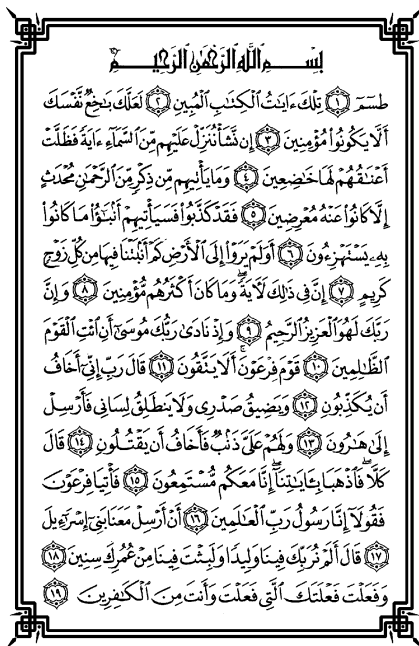 بسم الله الرحمن الرحيم
طسٓمٓ ۝١ تِلْكَ ءَايَٰتُ ٱلْكِتَٰبِ ٱلْمُبِينِ ۝٢ لَعَلَّكَ بَٰخِعٌ نَّفْسَكَ
أَلَّا يَكُونُوا۟ مُؤْمِنِينَ ۝٣ إِن نَّشَأْ نُنَزِّلْ عَلَيْهِم مِّنَ ٱلسَّمَآءِ ءَايَةً فَظَلَّتْ
أَعْنَٰقُهُمْ لَهَا خَٰضِعِينَ ۝٤ وَمَا يَأْتِيهِم مِّن ذِكْرٍ مِّنَ ٱلرَّحْمَٰنِ مُحْدَثٍ
إِلَّا كَانُوا۟ عَنْهُ مُعْرِضِينَ ۝٥ فَقَدْ كَذَّبُوا۟ فَسَيَأْتِيهِمْ أَنۢبَٰٓؤُا۟ مَا كَانُوا۟
بِهِۦ يَسْتَهْزِءُونَ ۝٦ أَوَلَمْ يَرَوْا۟ إِلَى ٱلْأَرْضِ كَمْ أَنۢبَتْنَا فِيهَا مِن كُلِّ زَوْجٍ
كَرِيمٍ ۝٧ إِنَّ فِى ذَٰلِكَ لَءَايَةً ۖ وَمَا كَانَ أَكْثَرُهُم مُّؤْمِنِينَ ۝٨ وَإِنَّ
رَبَّكَ لَهُوَ ٱلْعَزِيزُ ٱلرَّحِيمُ ۝٩ وَإِذْ نَادَىٰ رَبُّكَ مُوسَىٰٓ أَنِ ٱئْتِ ٱلْقَوْمَ
ٱلظَّٰلِمِينَ ۝١٠ قَوْمَ فِرْعَوْنَ ۚ أَلَا يَتَّقُونَ ۝١١ قَالَ رَبِّ إِنِّىٓ أَخَافُ
أَن يُكَذِّبُونِ ۝١٢ وَيَضِيقُ صَدْرِى وَلَا يَنطَلِقُ لِسَانِى فَأَرْسِلْ
إِلَىٰ هَٰرُونَ ۝١٣ وَلَهُمْ عَلَىَّ ذَنۢبٌ فَأَخَافُ أَن يَقْتُلُونِ ۝١٤ قَالَ
كَلَّا ۖ فَٱذْهَبَا بِـَٔايَٰتِنَآ ۖ إِنَّا مَعَكُم مُّسْتَمِعُونَ ۝١٥ فَأْتِيَا فِرْعَوْنَ
فَقُولَآ إِنَّا رَسُولُ رَبِّ ٱلْعَٰلَمِينَ ۝١٦ أَنْ أَرْسِلْ مَعَنَا بَنِىٓ إِسْرَٰٓءِيلَ
۝١٧ قَالَ أَلَمْ نُرَبِّكَ فِينَا وَلِيدًا وَلَبِثْتَ فِينَا مِنْ عُمُرِكَ سِنِينَ ۝١٨
وَفَعَلْتَ فَعْلَتَكَ ٱلَّتِى فَعَلْتَ وَأَنتَ مِنَ ٱلْكَٰفِرِينَ ۝١٩